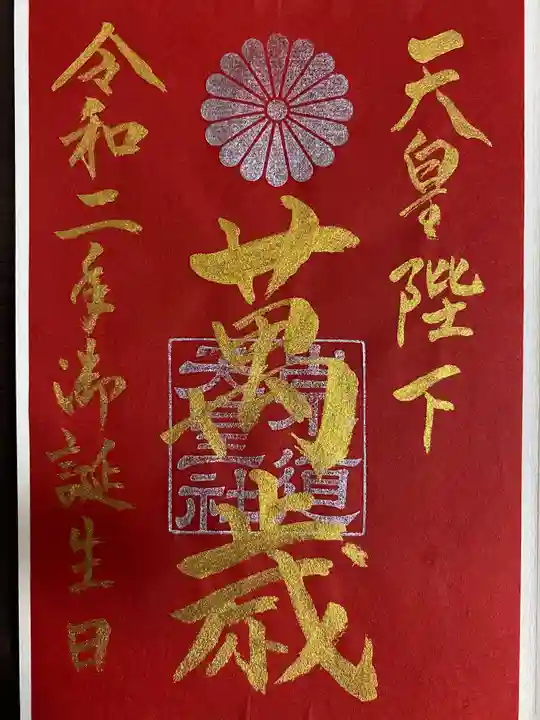 天皇陛下
萬歳
令和二年御誕生日